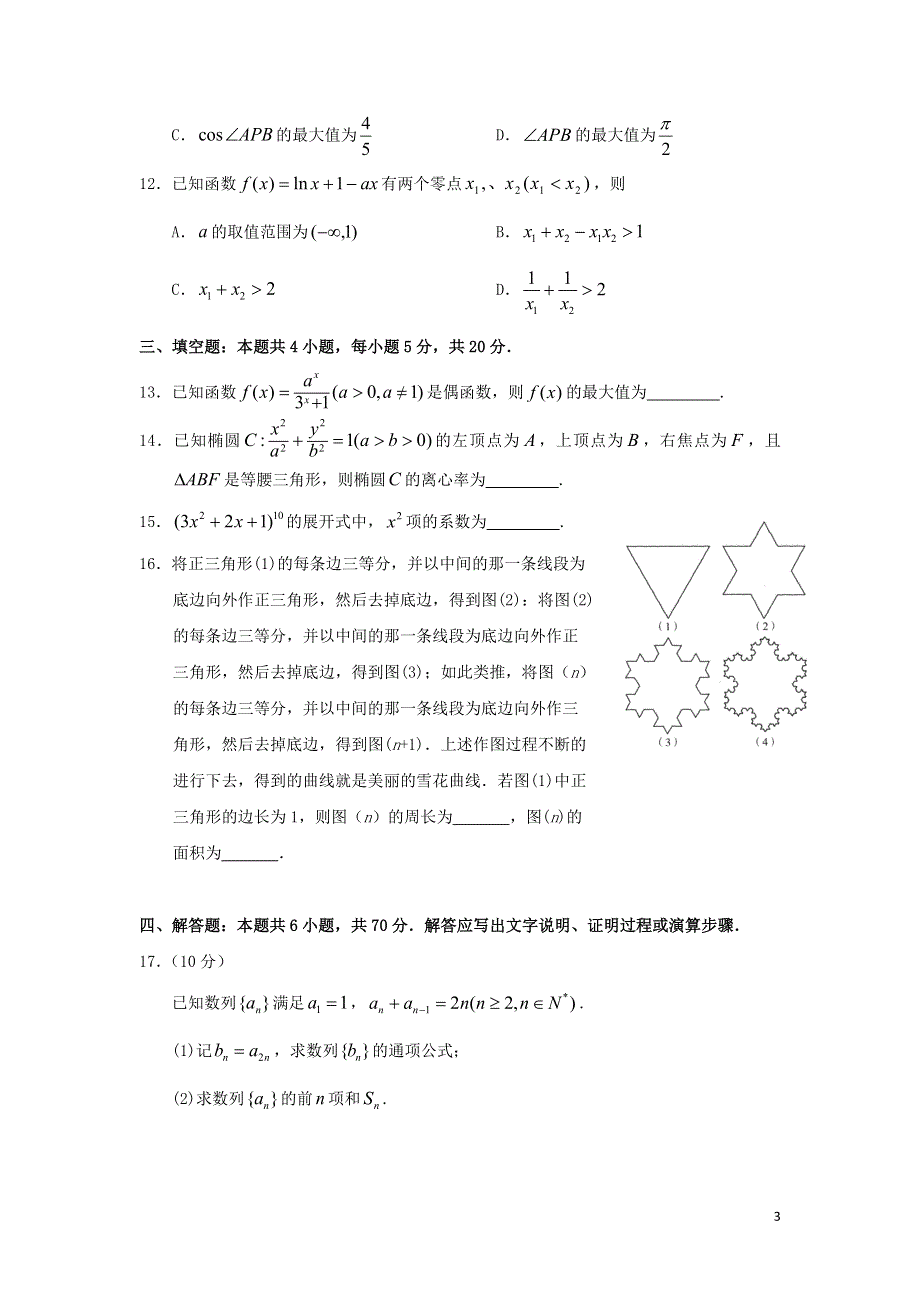 C. cos∠APB的最大值为4/5 D. ∠APB的最大值为π/2
12. 已知函数 f(x) = ln x + 1 − ax 有两个零点 x₁,、x₂(x₁ < x₂), 则
A. a 的取值范围为(−∞,1) B. x₁ + x₂ − x₁x₂ > 1
C. x₁ + x₂ > 2 D. 1/x₁ + 1/x₂ > 2
三、填空题: 本题共4小题, 每小题5分, 共20分.
13. 已知函数 f(x) = aˣ/(3ˣ+1) (a > 0, a ≠ 1) 是偶函数, 则 f(x) 的最大值为________.
14. 已知椭圆 C : x²/a² + y²/b² = 1(a > b > 0) 的左顶点为 A, 上顶点为 B, 右焦点为 F, 且
ΔABF 是等腰三角形, 则椭圆 C 的离心率为________.
15. (3x² + 2x + 1)¹⁰ 的展开式中, x² 项的系数为________.
16. 将正三角形(1)的每条边三等分, 并以中间的那一条线段为
底边向外作正三角形, 然后去掉底边, 得到图(2): 将图(2)
的每条边三等分, 并以中间的那一条线段为底边向外作正
三角形, 然后去掉底边, 得到图(3); 如此类推, 将图（n）
的每条边三等分, 并以中间的那一条线段为底边向外作三
角形, 然后去掉底边, 得到图(n+1). 上述作图过程不断的
进行下去, 得到的曲线就是美丽的雪花曲线. 若图(1)中正
三角形的边长为1, 则图（n）的周长为______, 图(n)的
面积为______.
(1) (2)
(3) (4)
四、解答题: 本题共6小题, 共70分. 解答应写出文字说明、证明过程或演算步骤.
17. (10分)
已知数列{aₙ}满足 a₁ = 1, aₙ + aₙ₋₁ = 2n(n ≥ 2, n ∈ N*).
(1)记 bₙ = a₂ₙ, 求数列{bₙ}的通项公式;
(2)求数列{aₙ}的前 n 项和 Sₙ.
3